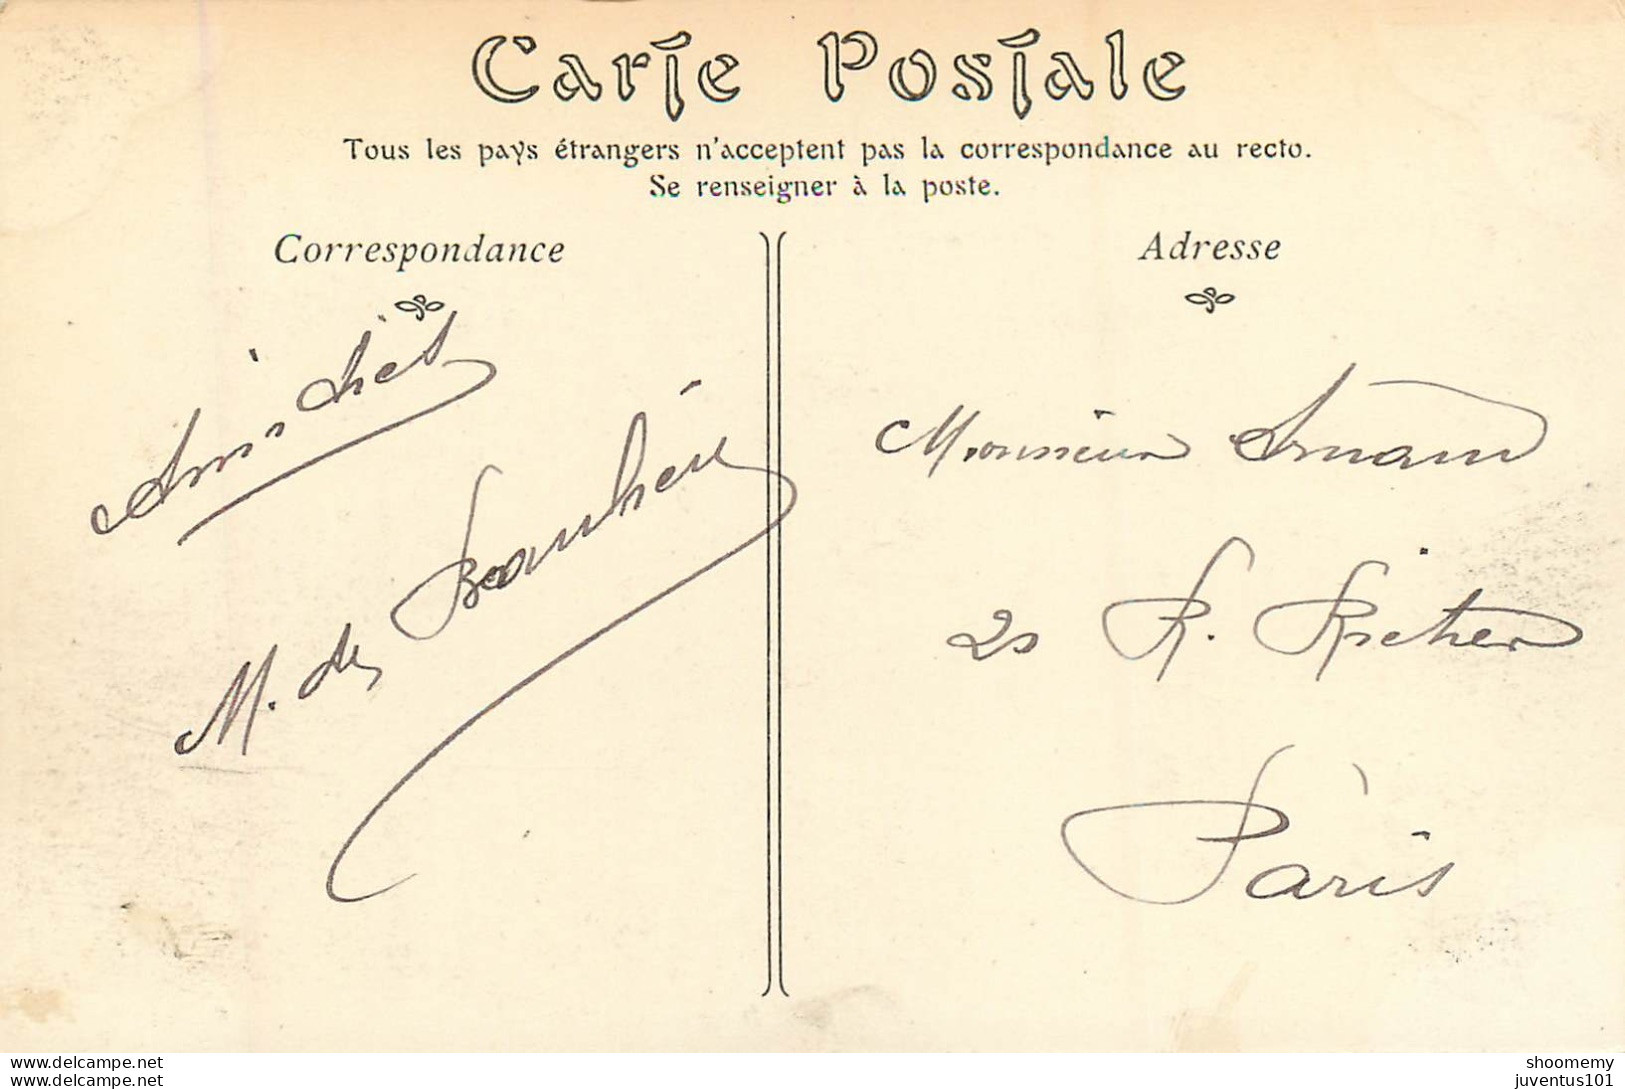 Carte Postale
Tous les pays étrangers n'acceptent pas la correspondance au recto.
Se renseigner à la poste.
Correspondance
Adresse
Amitiés
M. de
Monsieur
R. Richer
Paris
www.delcampe.net
www.delcampe.net
shoomemy
juventus101